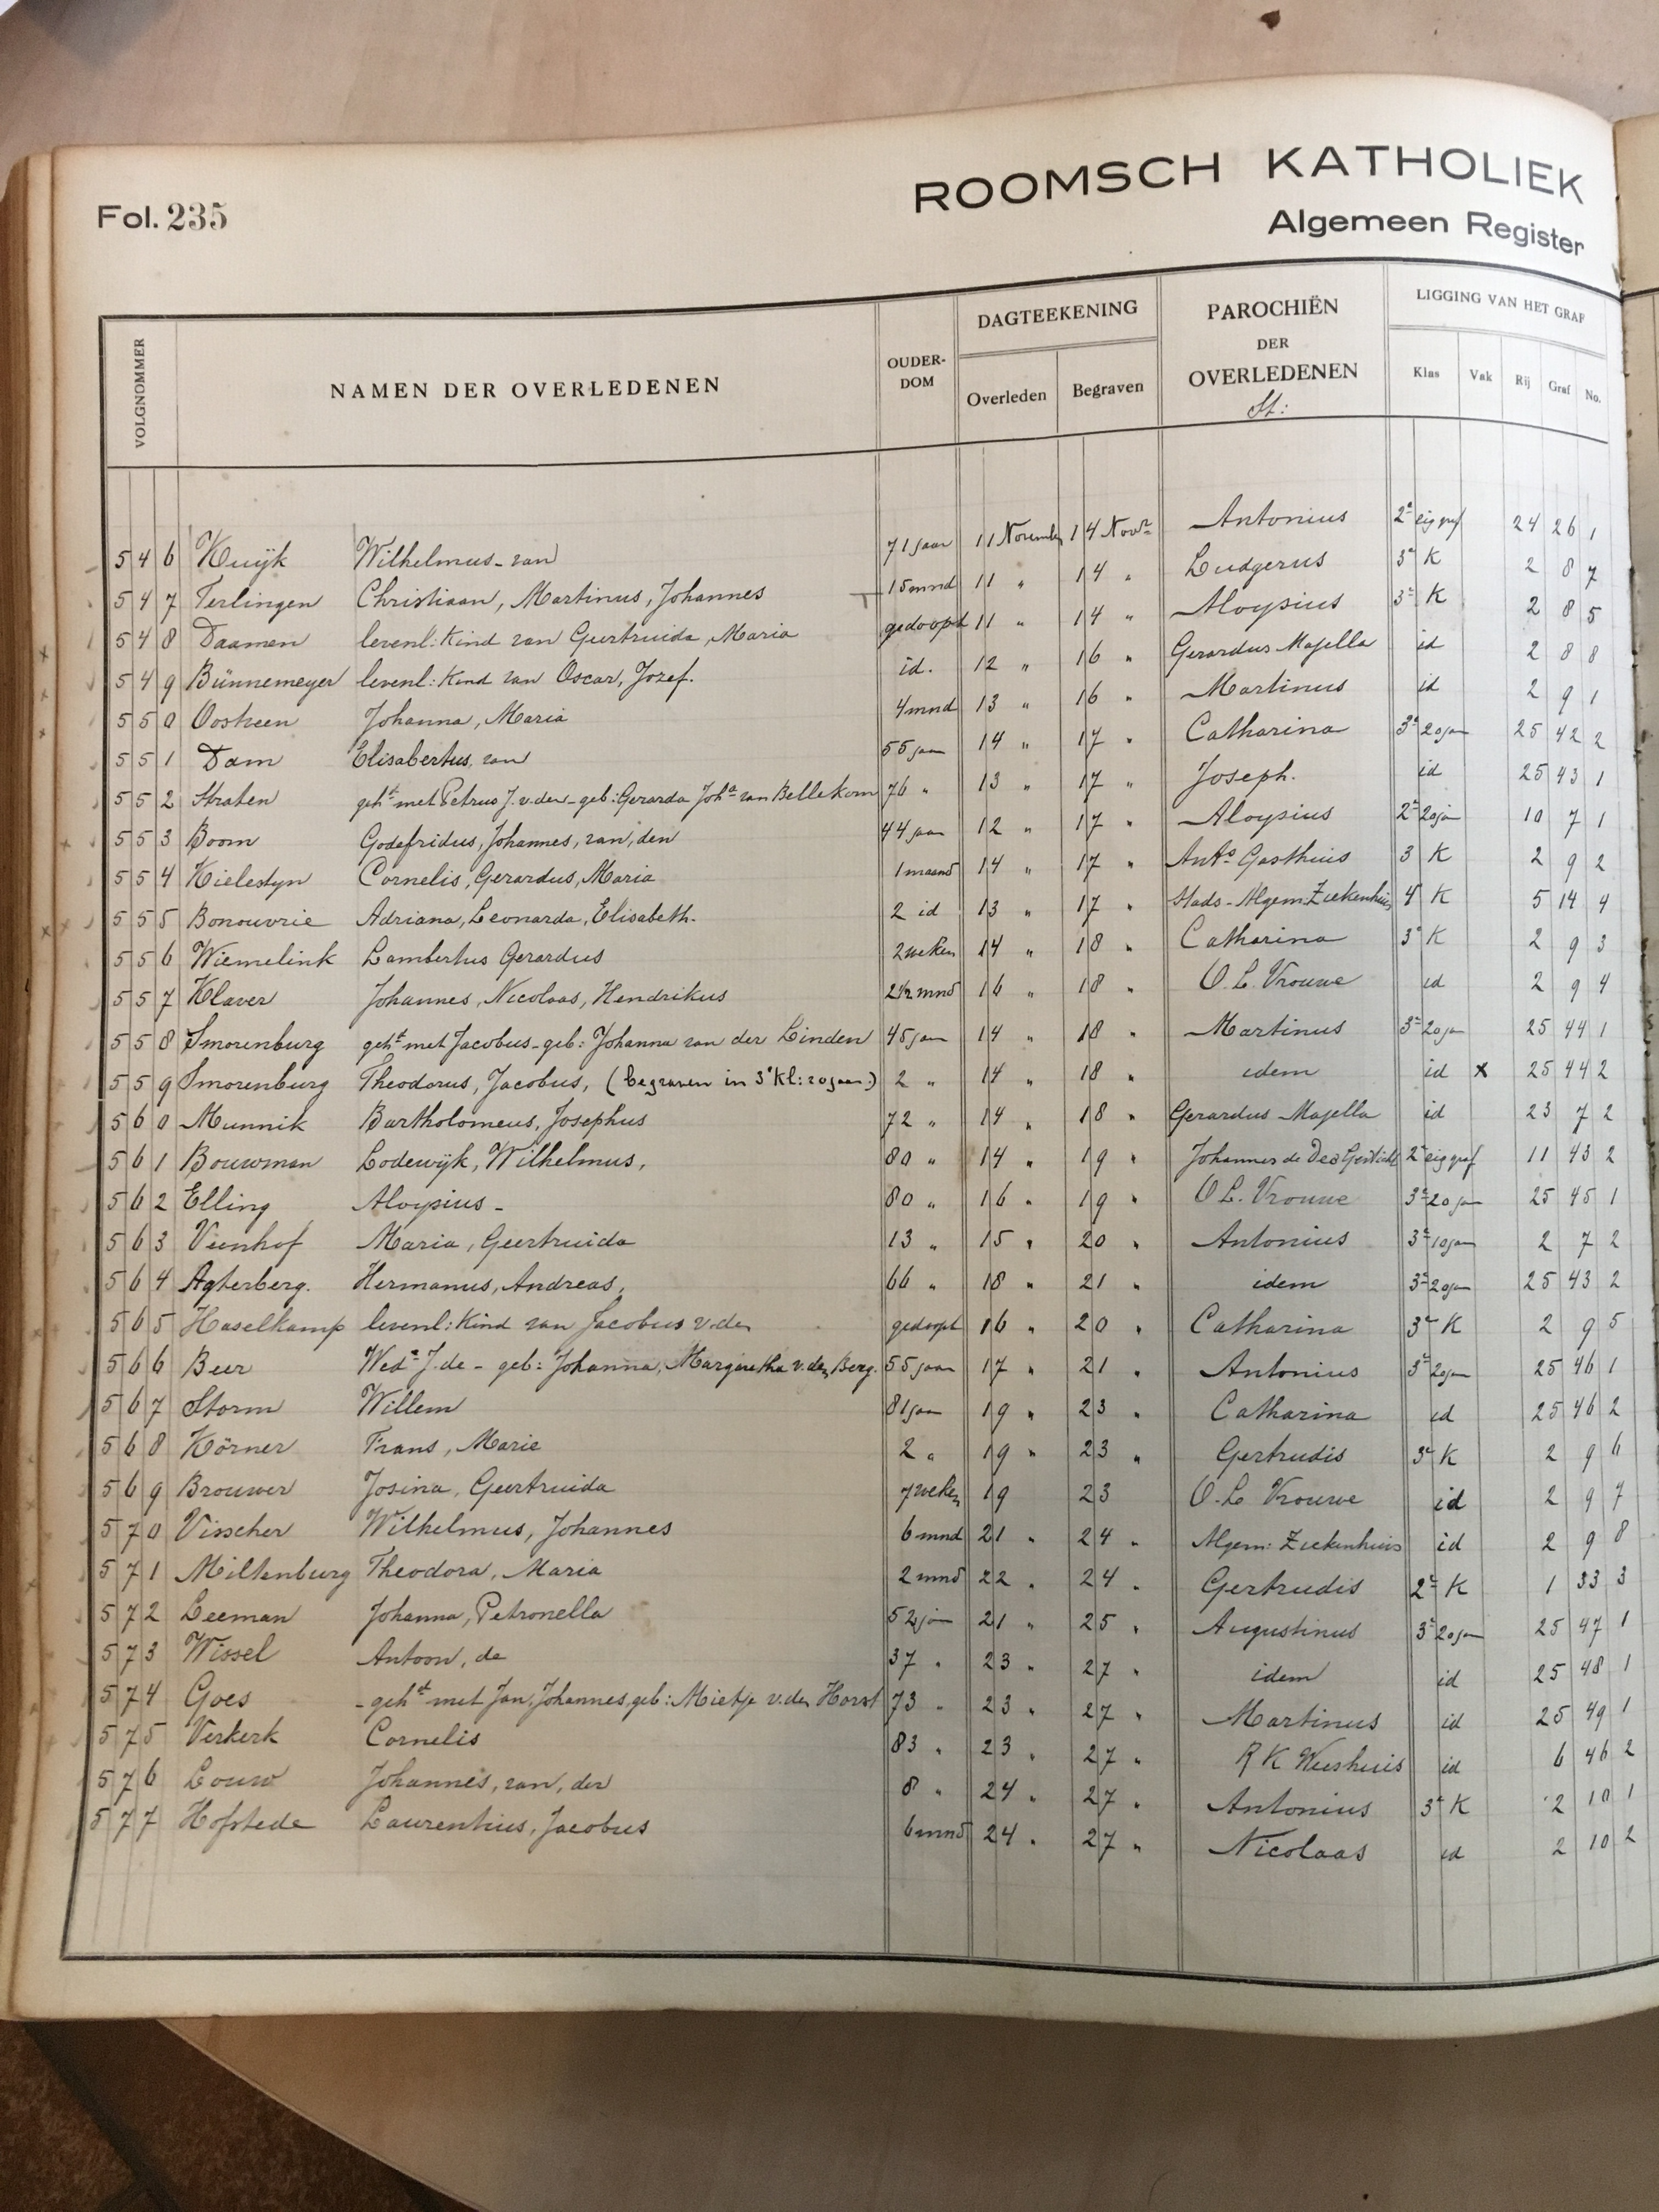 Fol. 235
ROOMSCH KATHOLIEK
Algemeen Register
VOLGNOMMER
NAMEN DER OVERLEDENEN
OUDER-DOM
DAGTEEKENING
Overleden Begraven
PAROCHIËN DER OVERLEDENEN
St:
LIGGING VAN HET GRAF
Klas Vak Rij Graf No.
546 Kuijk Wilhelmus - van 71 jaar 11 November 14 Novr 2e eig graf Antonius 24 26 1
547 Terlingen Christiaan, Martinus, Johannes 15 mnd 11 " 14 " Ludgerus 3e K 2 8 7
548 Daamen levenl: Kind van Geertruida, Maria gedoopt 11 " 14 " Aloysius 3e K 2 8 5
549 Bünnemeyer levenl: Kind van Oscar, Jozef. id. 12 " 16 " Gerardus Majella id 2 8 8
550 Oostveen Johanna, Maria 4 mnd 13 " 16 " Martinus id 2 9 1
551 Dam Elisabertus, van 55 jaar 14 " 17 " Catharina 3e 20 jaar 25 42 2
552 Straten geht met Petrus J. v. der - geb: Gerarda Joha van Bellekom 76 " 13 " 17 " Joseph. id 25 43 1
553 Boom Godefridus, Johannes, van, den 44 jaar 12 " 17 " Aloysius 2e 20 jaar 10 7 1
554 Kielestyn Cornelis, Gerardus, Maria 1 maand 14 " 17 " Ants Gasthuis 3 K 2 9 2
555 Bonouvrie Adriana, Leonarda, Elisabeth. 2 id 13 " 17 " Stads - Algem. Ziekenhuis 4 K 5 14 4
556 Wiemelink Lambertus Gerardus 2 weken 14 " 18 " Catharina 3e K 2 9 3
557 Klaver Johannes, Nicolaas, Hendrikus 2 1/2 mnd 16 " 18 " O. L. Vrouwe id 2 9 4
558 Smorenburg geht met Jacobus - geb: Johanna van der Linden 45 jaar 14 " 18 " Martinus 3e 20 jaar 25 44 1
559 Smorenburg Theodorus, Jacobus, (begraven in 3e Kl: 20 jaar) 2 " 14 " 18 " idem id x 25 44 2
560 Munnik Bartholomeus, Josephus 72 " 14 " 18 " Gerardus Majella id 23 7 2
561 Bouwman Lodewijk, Wilhelmus, 80 " 14 " 19 " Johannes de Deo Gesticht 2e eig graf 11 43 2
562 Elling Aloysius - 80 " 16 " 19 " O L. Vrouwe 3e 20 jaar 25 45 1
563 Veenhof Maria, Geertruida 13 " 15 " 20 " Antonius 3e 10 jaar 2 7 2
564 Agterberg. Hermanus, Andreas, 66 " 18 " 21 " idem 3e 20 jaar 25 43 2
565 Haselkamp levenl: Kind van Jacobus v. den gedoopt 16 " 20 " Catharina 3e K 2 9 5
566 Beer Wede J. de - geb: Johanna, Margaretha v. den Berg. 55 jaar 17 " 21 " Antonius 3e 20 jaar 25 46 1
567 Storm Willem 81 jaar 19 " 23 " Catharina id 25 46 2
568 Körner Frans, Marie 2 " 19 " 23 " Gertrudis 3e K 2 9 6
569 Brouwer Josina, Geertruida 7 weken 19 23 O. L. Vrouwe id 2 9 7
570 Visscher Wilhelmus, Johannes 6 mnd 21 " 24 " Algem: Ziekenhuis id 2 9 8
571 Miltenburg Theodora, Maria 2 mnd 22 " 24 " Gertrudis 2e K 1 33 3
572 Leeman Johanna, Petronella 52 jaar 21 " 25 " Augustinus 3e 20 jaar 25 47 1
573 Wissel Antoon, de 37 " 23 " 27 " idem id 25 48 1
574 Goes - geht met Jan, Johannes, geb: Mietje v. den Horst 73 " 23 " 27 " Martinus id 25 49 1
575 Verkerk Cornelis 83 " 23 " 27 " R K Weeshuis id 6 46 2
576 Louw Johannes, van, der 8 " 24 " 27 " Antonius 3e K 2 10 1
577 Hofstede Laurentius, Jacobus 6 mnd 24 " 27 " Nicolaas id 2 10 2